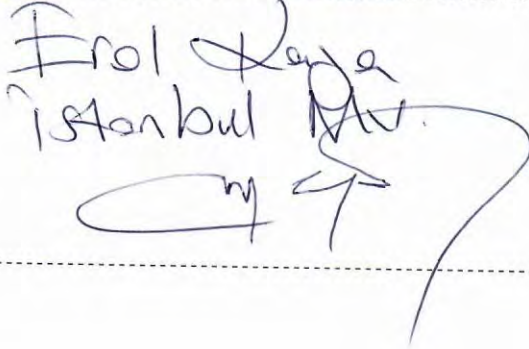 Erol Kaya
İstanbul Mv.